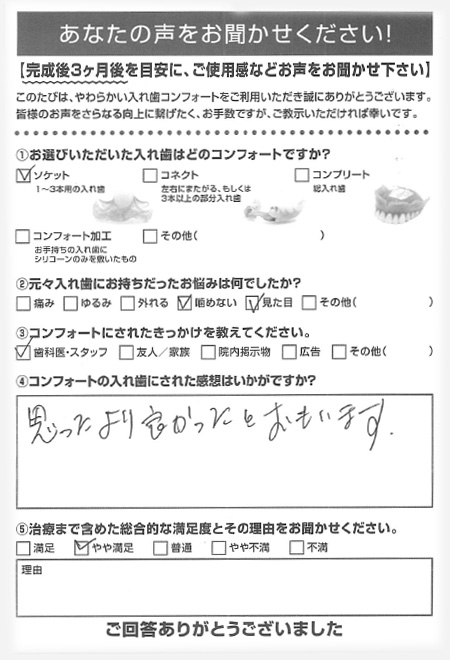 あなたの声をお聞かせください!
【完成後3ヶ月後を目安に、ご使用感などお声をお聞かせ下さい】
このたびは、やわらかい入れ歯コンフォートをご利用いただき誠にありがとうございます。
皆様のお声をさらなる向上に繋げたく、お手数ですが、ご教示いただければ幸いです。
①お選びいただいた入れ歯はどのコンフォートですか?
☑ソケット □コネクト □コンプリート
1～3本用の入れ歯 左右にまたがる、もしくは 総入れ歯
3本以上の部分入れ歯
□コンフォート加工 □その他( )
お手持ちの入れ歯に
シリコーンのみを敷いたもの
②元々入れ歯にお持ちだったお悩みは何でしたか?
□痛み □ゆるみ □外れる ☑噛めない ☑見た目 □その他( )
③コンフォートにされたきっかけを教えてください。
☑歯科医・スタッフ □友人／家族 □院内掲示物 □広告 □その他( )
④コンフォートの入れ歯にされた感想はいかがですか?
思ったより良かったとおもいます.
⑤治療まで含めた総合的な満足度とその理由をお聞かせください。
□満足 ☑やや満足 □普通 □やや不満 □不満
理由
ご回答ありがとうございました